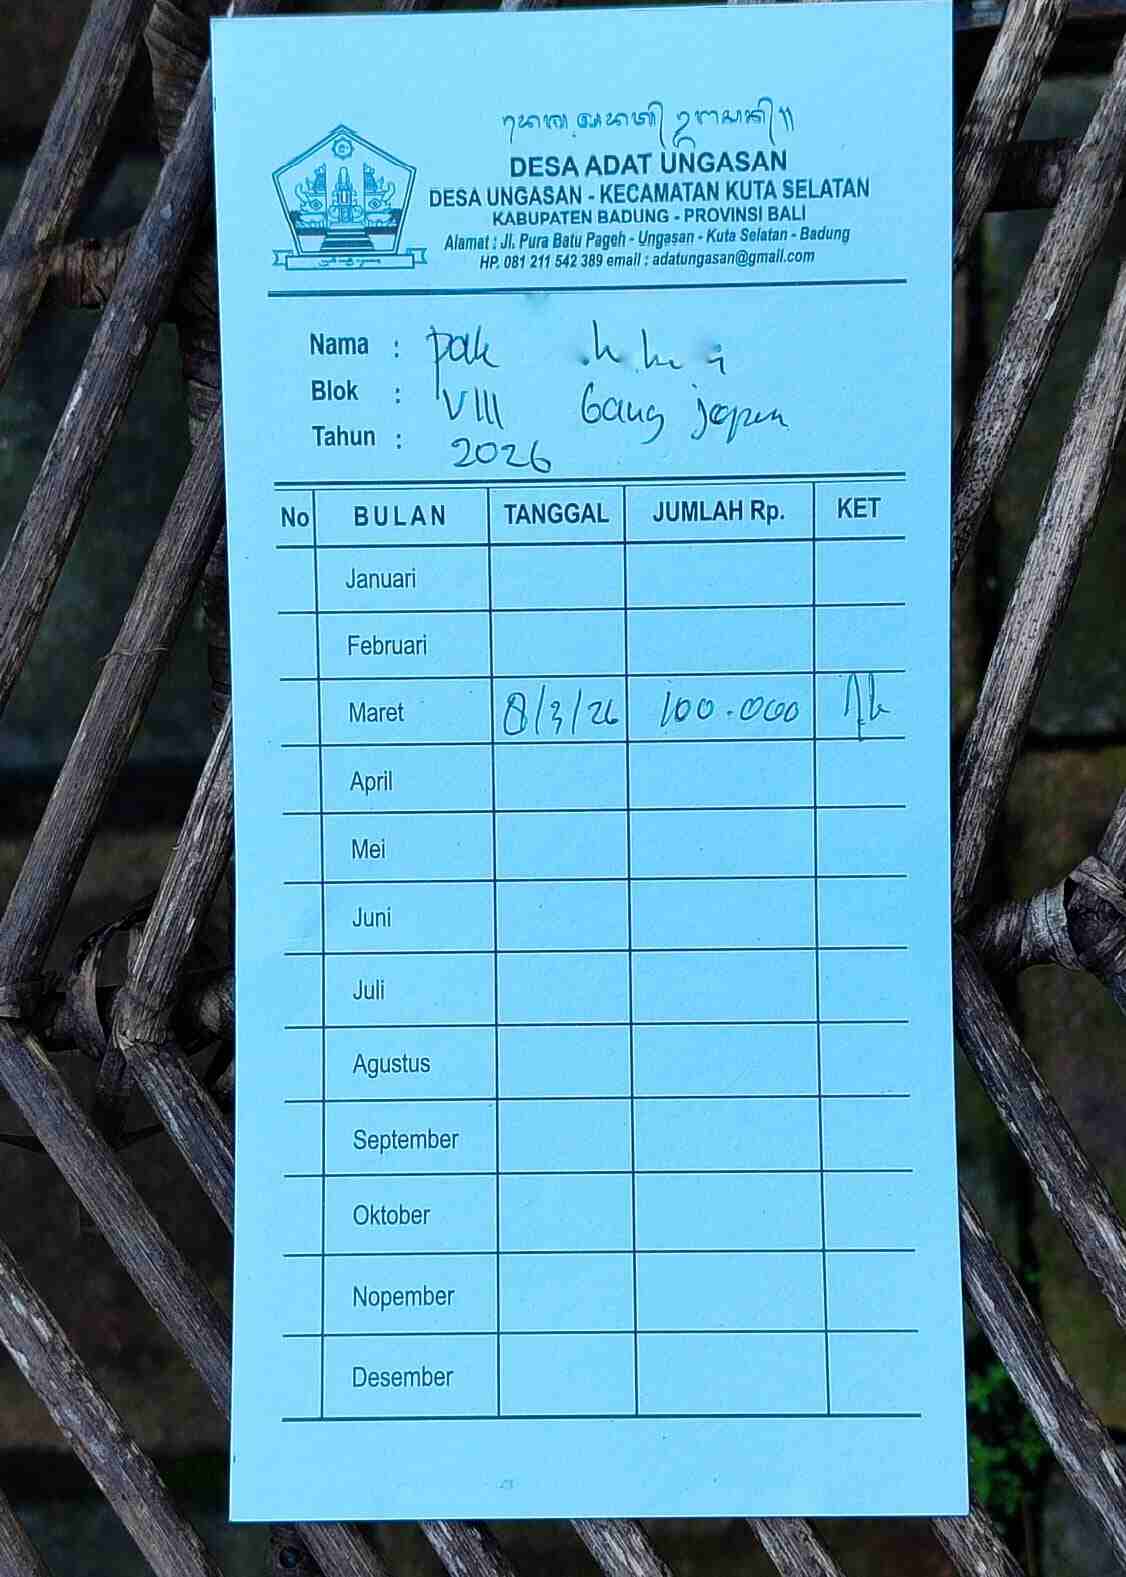 DESA ADAT UNGASAN
DESA UNGASAN - KECAMATAN KUTA SELATAN
KABUPATEN BADUNG - PROVINSI BALI
Alamat : Jl. Pura Batu Pageh - Ungasan - Kuta Selatan - Badung
HP. 081 211 542 389 email : adatungasan@gmail.com
Nama : pak
Blok : VIII Gang
Tahun : 2026
No BULAN TANGGAL JUMLAH Rp. KET
Januari
Februari
Maret 8/3/26 100.000
April
Mei
Juni
Juli
Agustus
September
Oktober
Nopember
Desember